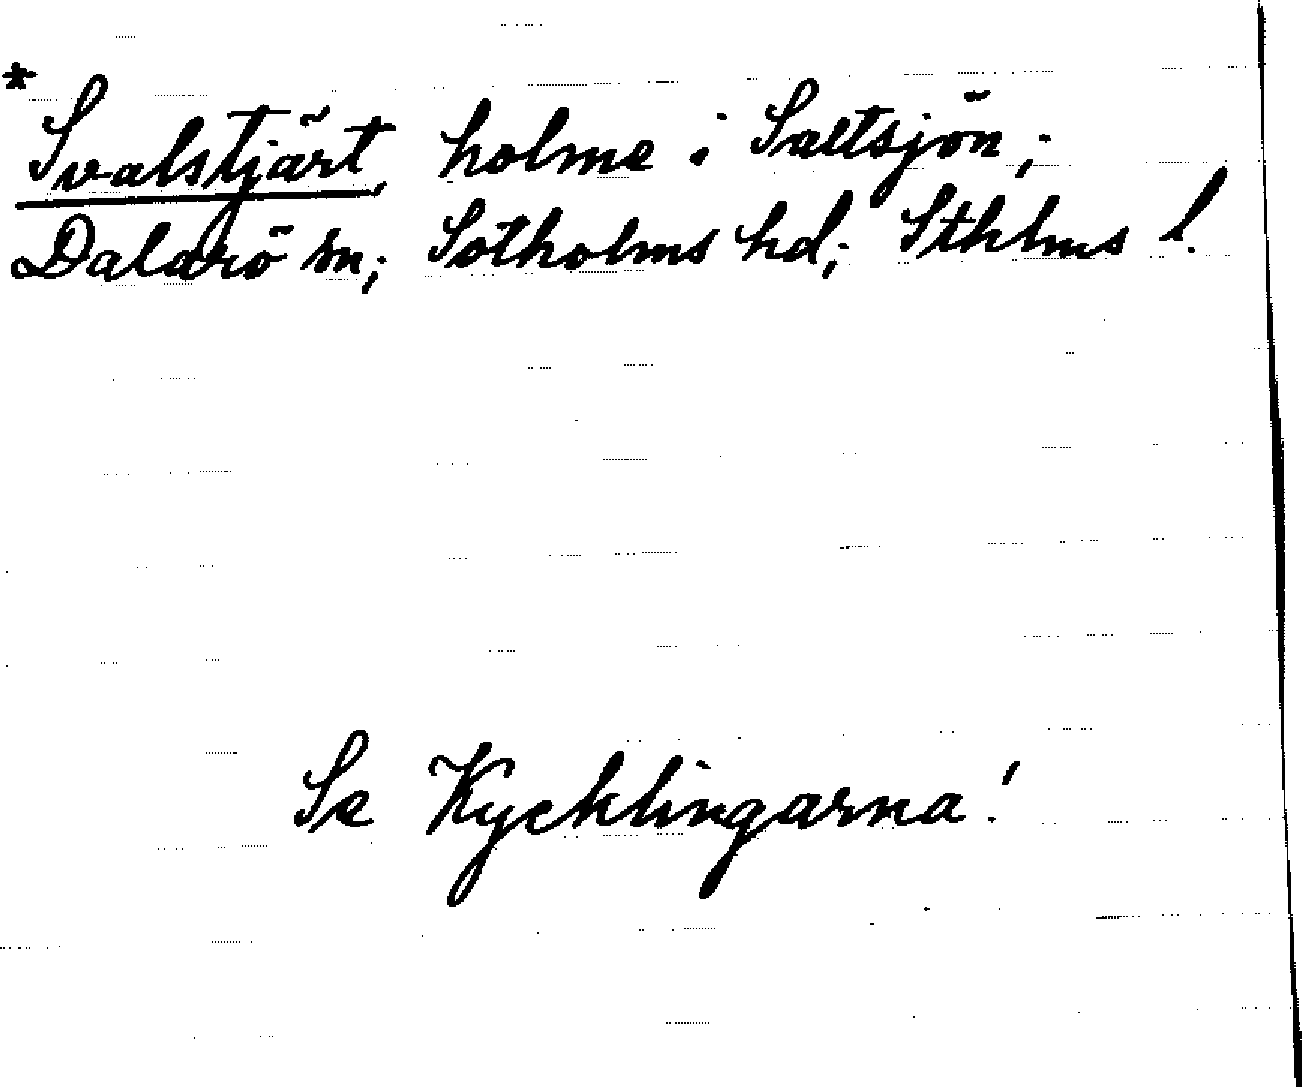 *
Svalstjärt, holme i Saltsjön;
Dalarö sn; Sotholms hd; Sthlms l.
Se Kycklingarna!